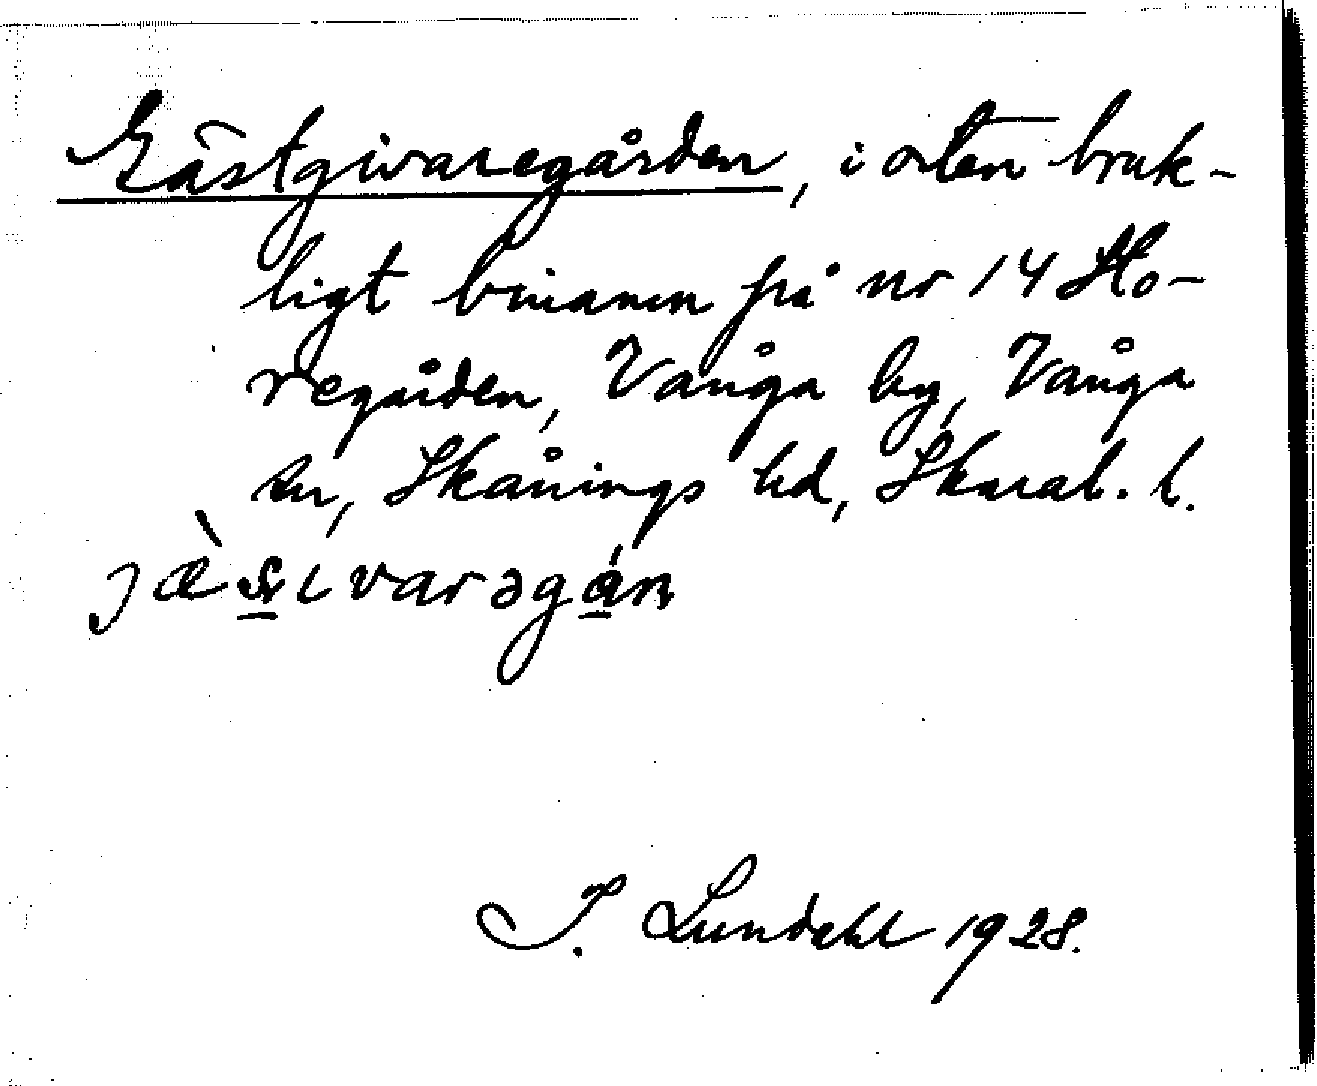 Gästgivaregården, i orten bruk-
ligt binamn på nr 14 Sto-
regården, Vånga by, Vånga
sn, Skånings hd, Skarab. l.
I. Lundahl 1928.